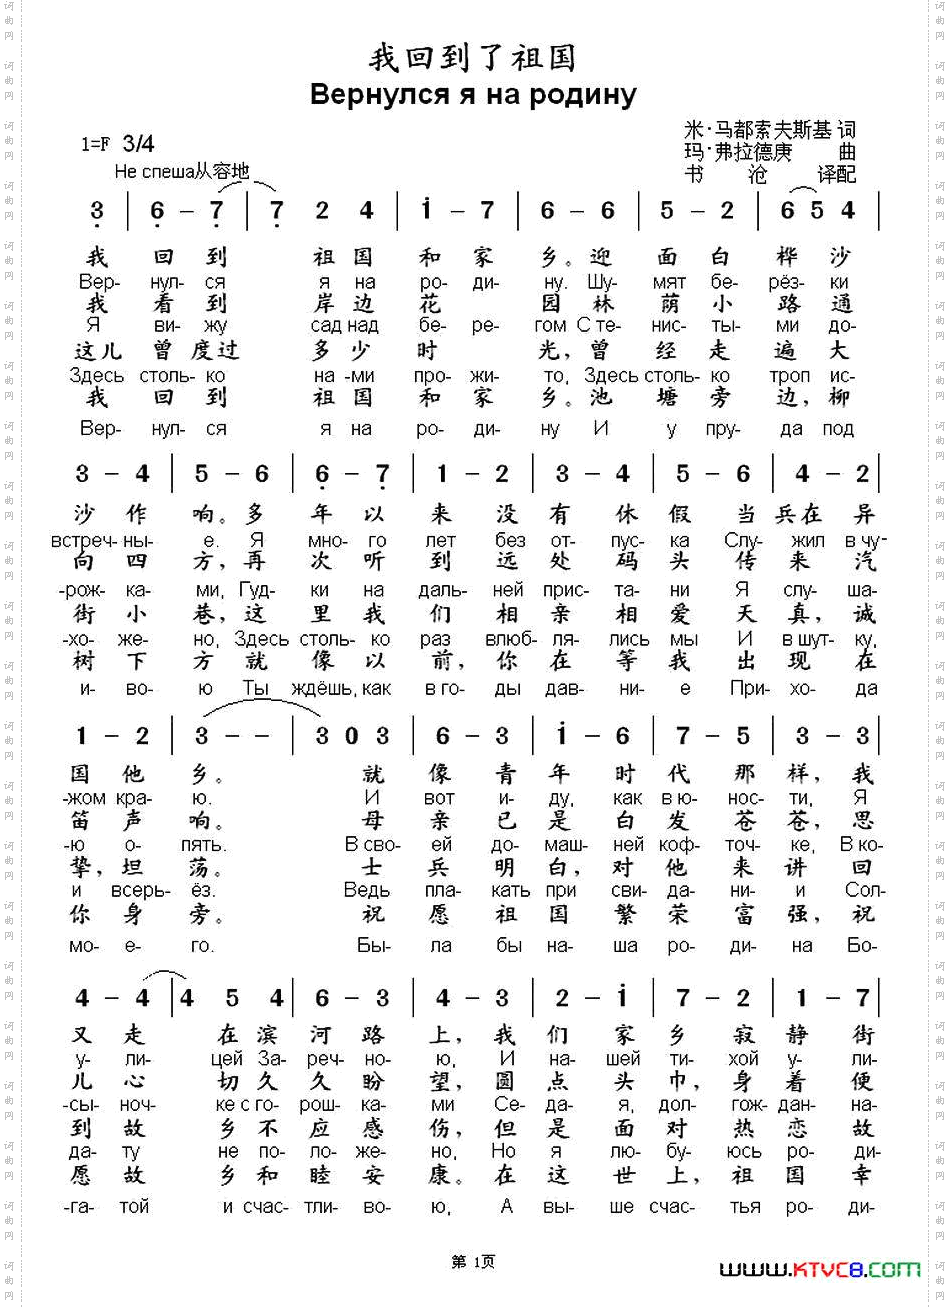 我回到了祖国
Вернулся я на родину
1=F 3/4
米·马都索夫斯基 词
玛·弗拉德庚 曲
书 沧 译配
Не спеша从容地
3 | 6 – 7 | 7 2 4 | i – 7 | 6 – 6 | 5 – 2 | 6 5 4 |
我 回 到 祖 国 和 家 乡。迎 面 白 桦 沙
Вер- нул- ся я на ро- ди- ну. Шу- мят бе- рёз- ки
我 看 到 岸 边 花 园 林 荫 小 路 通
Я ви- жу сад над бе- ре- гом С те- нис- ты- ми до-
这儿 曾 度过 多 少 时 光，曾 经 走 遍 大
Здесь столь- ко на -ми про- жи- то, Здесь столь- ко троп ис-
我 回 到 祖 国 和 家 乡。池 塘 旁 边，柳
Вер- нул- ся я на ро- ди- ну И у пру- да под
3 – 4 | 5 – 6 | 6 – 7 | 1 – 2 | 3 – 4 | 5 – 6 | 4 – 2 |
沙 作 响。多 年 以 来 没 有 休 假 当 兵在 异
встреч- ны- е. Я мно- го лет без от- пус- ка Слу- жил в чу-
向 四 方，再 次 听 到 远 处 码 头 传 来 汽
-рож- ка- ми, Гуд- ки на даль- ней прис- та- ни Я слу- ша-
街 小 巷，这 里 我 们 相 亲 相 爱 天 真，诚
-хо- же- но, Здесь столь- ко раз влюб- ля- лись мы И в шут- ку,
树 下 方 就 像 以 前，你 在 等 我 出 现 在
и- во- ю Ты ждёшь, как в го- ды дав- ни- е При- хо- да
1 – 2 | 3 – – | 3 0 3 | 6 – 3 | i – 6 | 7 – 5 | 3 – 3 |
国 他 乡。 就 像 青 年 时 代 那 样，我
-жом кра- ю. И вот и- ду, как в ю- нос- ти, Я
笛 声 响。 母 亲 已 是 白 发 苍 苍，思
-ю о- пять. В сво- ей до- маш- ней коф- точ- ке, В ко-
挚，坦 荡。 士 兵 明 白，对 他 来 讲 回
и всерь- ёз. Ведь пла- кать при сви- да- ни- и Сол-
你 身 旁。 祝 愿 祖 国 繁 荣 富 强，祝
мо- е- го. Бы- ла бы на- ша ро- ди- на Бо-
4 – 4 | 4 5 4 | 6 – 3 | 4 – 3 | 2 – i | 7 – 2 | 1 – 7 |
又 走 在 滨 河 路 上，我 们 家 乡 寂 静 街
у- ли- цей За- реч- но- ю, И на- шей ти- хой у- ли-
儿 心 切 久 久 盼 望，圆 点 头 巾，身 着 便
-сы- ноч- ке с го- рош- ка- ми Се- да- я, дол- гож- дан- на-
到 故 乡 不 应 感 伤，但 是 面 对 热 恋 故
да- ту не по- ло- же- но, Но я лю- бу- юсь ро- ди-
愿 故 乡 和 睦 安 康。在 这 世 上，祖 国 幸
-га- той и счас- тли- во- ю, А вы- ше счас- тья ро- ди-
第 1页
www.KTVC8.com